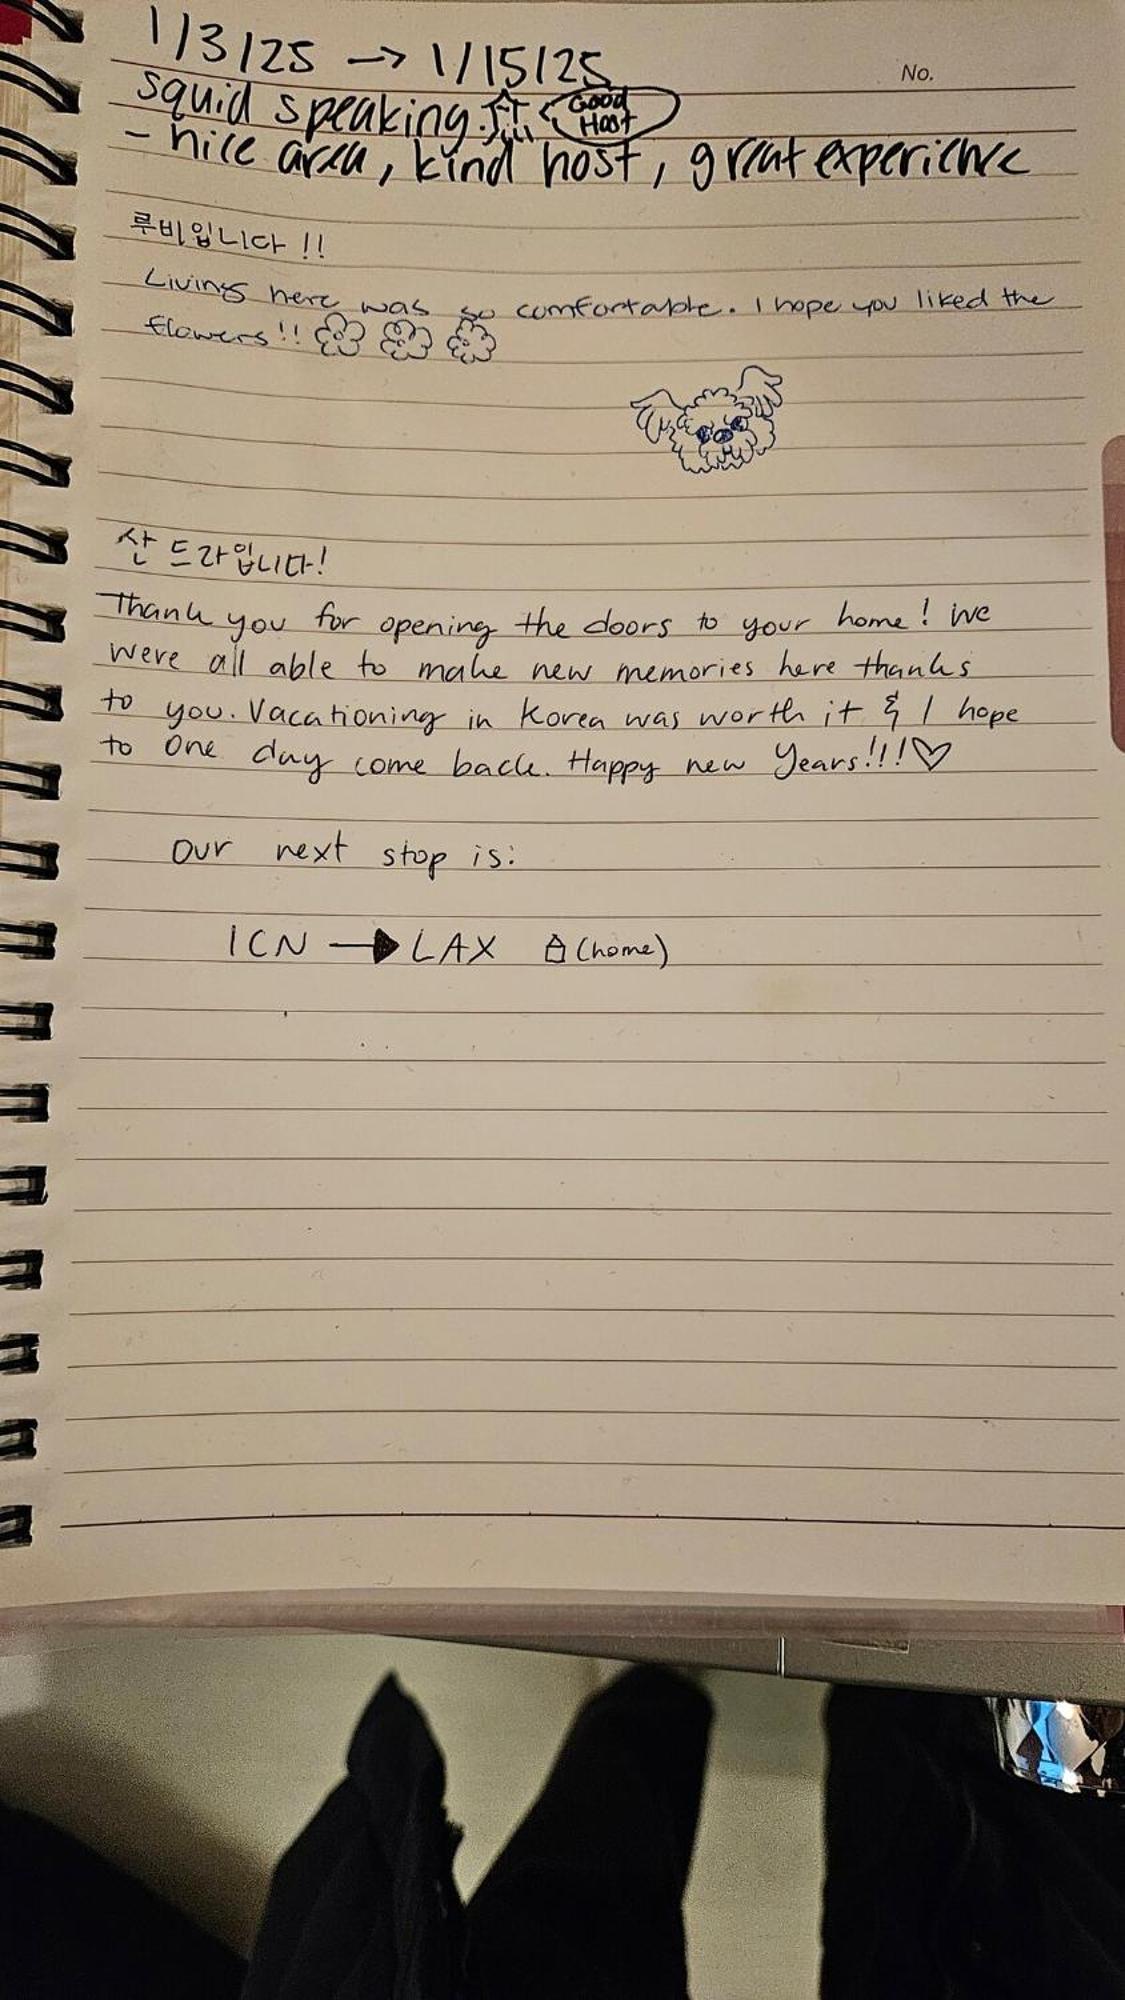 1/3/25 → 1/15/25
No.
squid speaking. Good Host
- nice area, kind host, great experience
루비입니다!!
Living here was so comfortable. I hope you liked the
flowers!!
산드라입니다!
Thank you for opening the doors to your home! We
were all able to make new memories here thanks
to you. Vacationing in Korea was worth it & I hope
to one day come back. Happy new Years!!!♡
Our next stop is:
ICN → LAX (home)